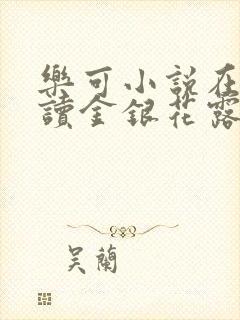 樂可小說在
讀金銀花露
吴蘭